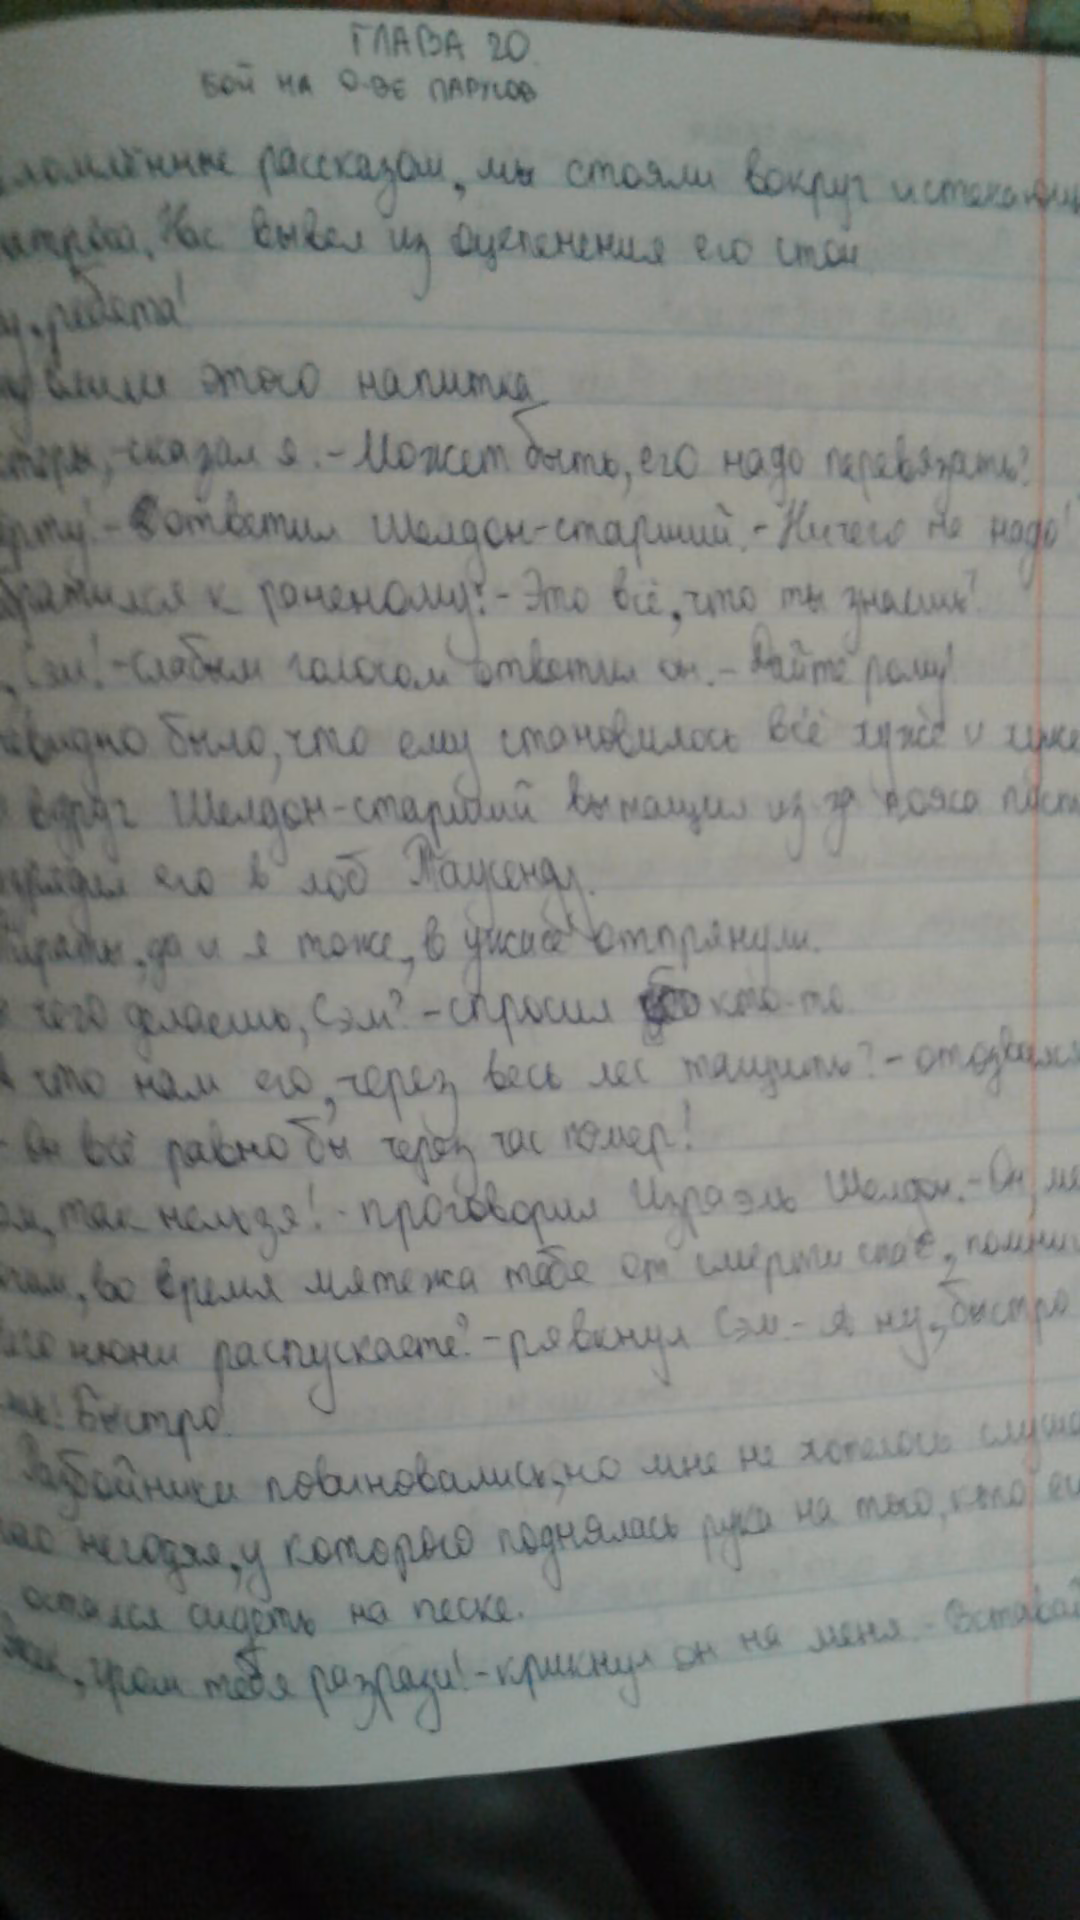 ГЛАВА 20.
БОЙ НА О-ВЕ ПАРУСОВ
рассказом, мы стояли вокруг
Нас вывел из оцепенения его стон
ребята!
этого напитка.
-сказал я.-Может быть, его надо перевязать?
-ответил Шелдон-старший.-Ничего не надо!
к раненому:-Это всё, что ты знаешь?
Сэм!-слабым голосом ответил он.-Дайте рому!
было, что ему становилось всё хуже и хуже
вдруг Шелдон-старший вытащил из-за пояса
его в лоб Таусенду.
да и я тоже, в ужасе отпрянули.
чего делаешь, Сэм?-спросил кто-то
что нам его, через весь лес тащить?-
Он всё равно бы через час помер!
так нельзя!-проговорил Израэль Шелдон.-Он,
во время мятежа тебя от смерти спас,
нюни распускаете?-рявкнул Сэм.-А ну, быстро
Быстро!
Разбойники повиновались, но мне не хотелось
негодяя, у которого поднялась рука на того, кто
остался сидеть на песке.
гром тебя разрази!-крикнул он на меня.-